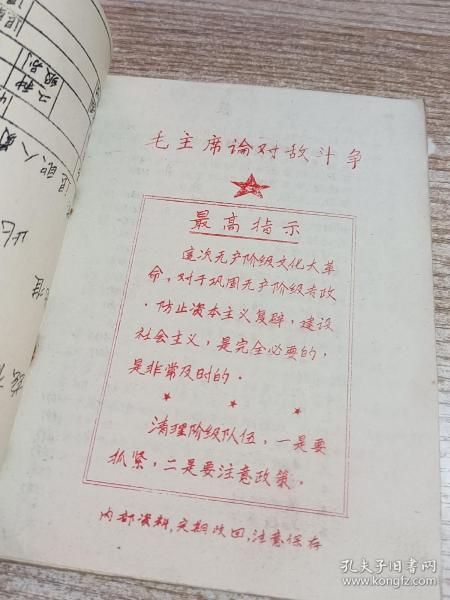 毛主席论对敌斗争
最高指示
这次无产阶级文化大革
命，对于巩固无产阶级专政
，防止资本主义复辟，建设
社会主义，是完全必要的，
是非常及时的。
清理阶级队伍，一是要
抓紧，二是要注意政策。
内部资料，定期收回，注意保存
二种
级别
孔夫子旧书网
book.kongfz.com